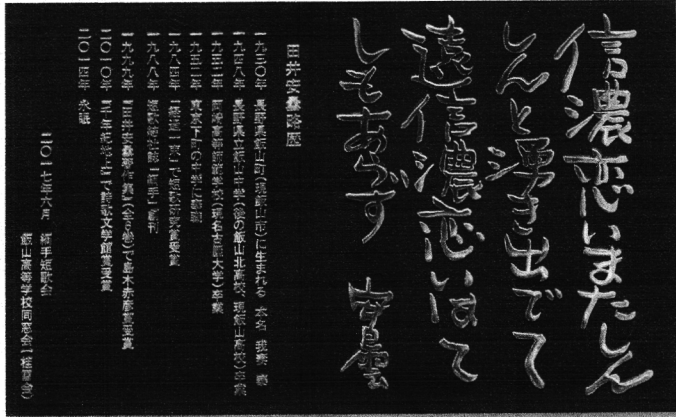 信濃恋いまたしん
しんと湧き出でて
遠信濃恋いはて
しもあらず 安曇
田井安曇略歴
一九三〇年 長野県飯山町(現飯山市)に生まれる 本名 我妻 泰
一九四八年 長野県立飯山中学(後の飯山北高校、現飯山高校)卒業
一九五二年 岡崎高等師範学校(現名古屋大学)卒業
一九五二年 東京下町の中学に赴任
一九八四年 「経過一束」で短歌研究賞受賞
一九八八年 短歌結社誌「綱手」創刊
一九九九年 『田井安曇著作集』(全6巻)で島木赤彦賞受賞
二〇一〇年 『千年紀地上』で詩歌文学館賞受賞
二〇一四年 永眠
二〇一七年六月 綱手短歌会
飯山高等学校同窓会